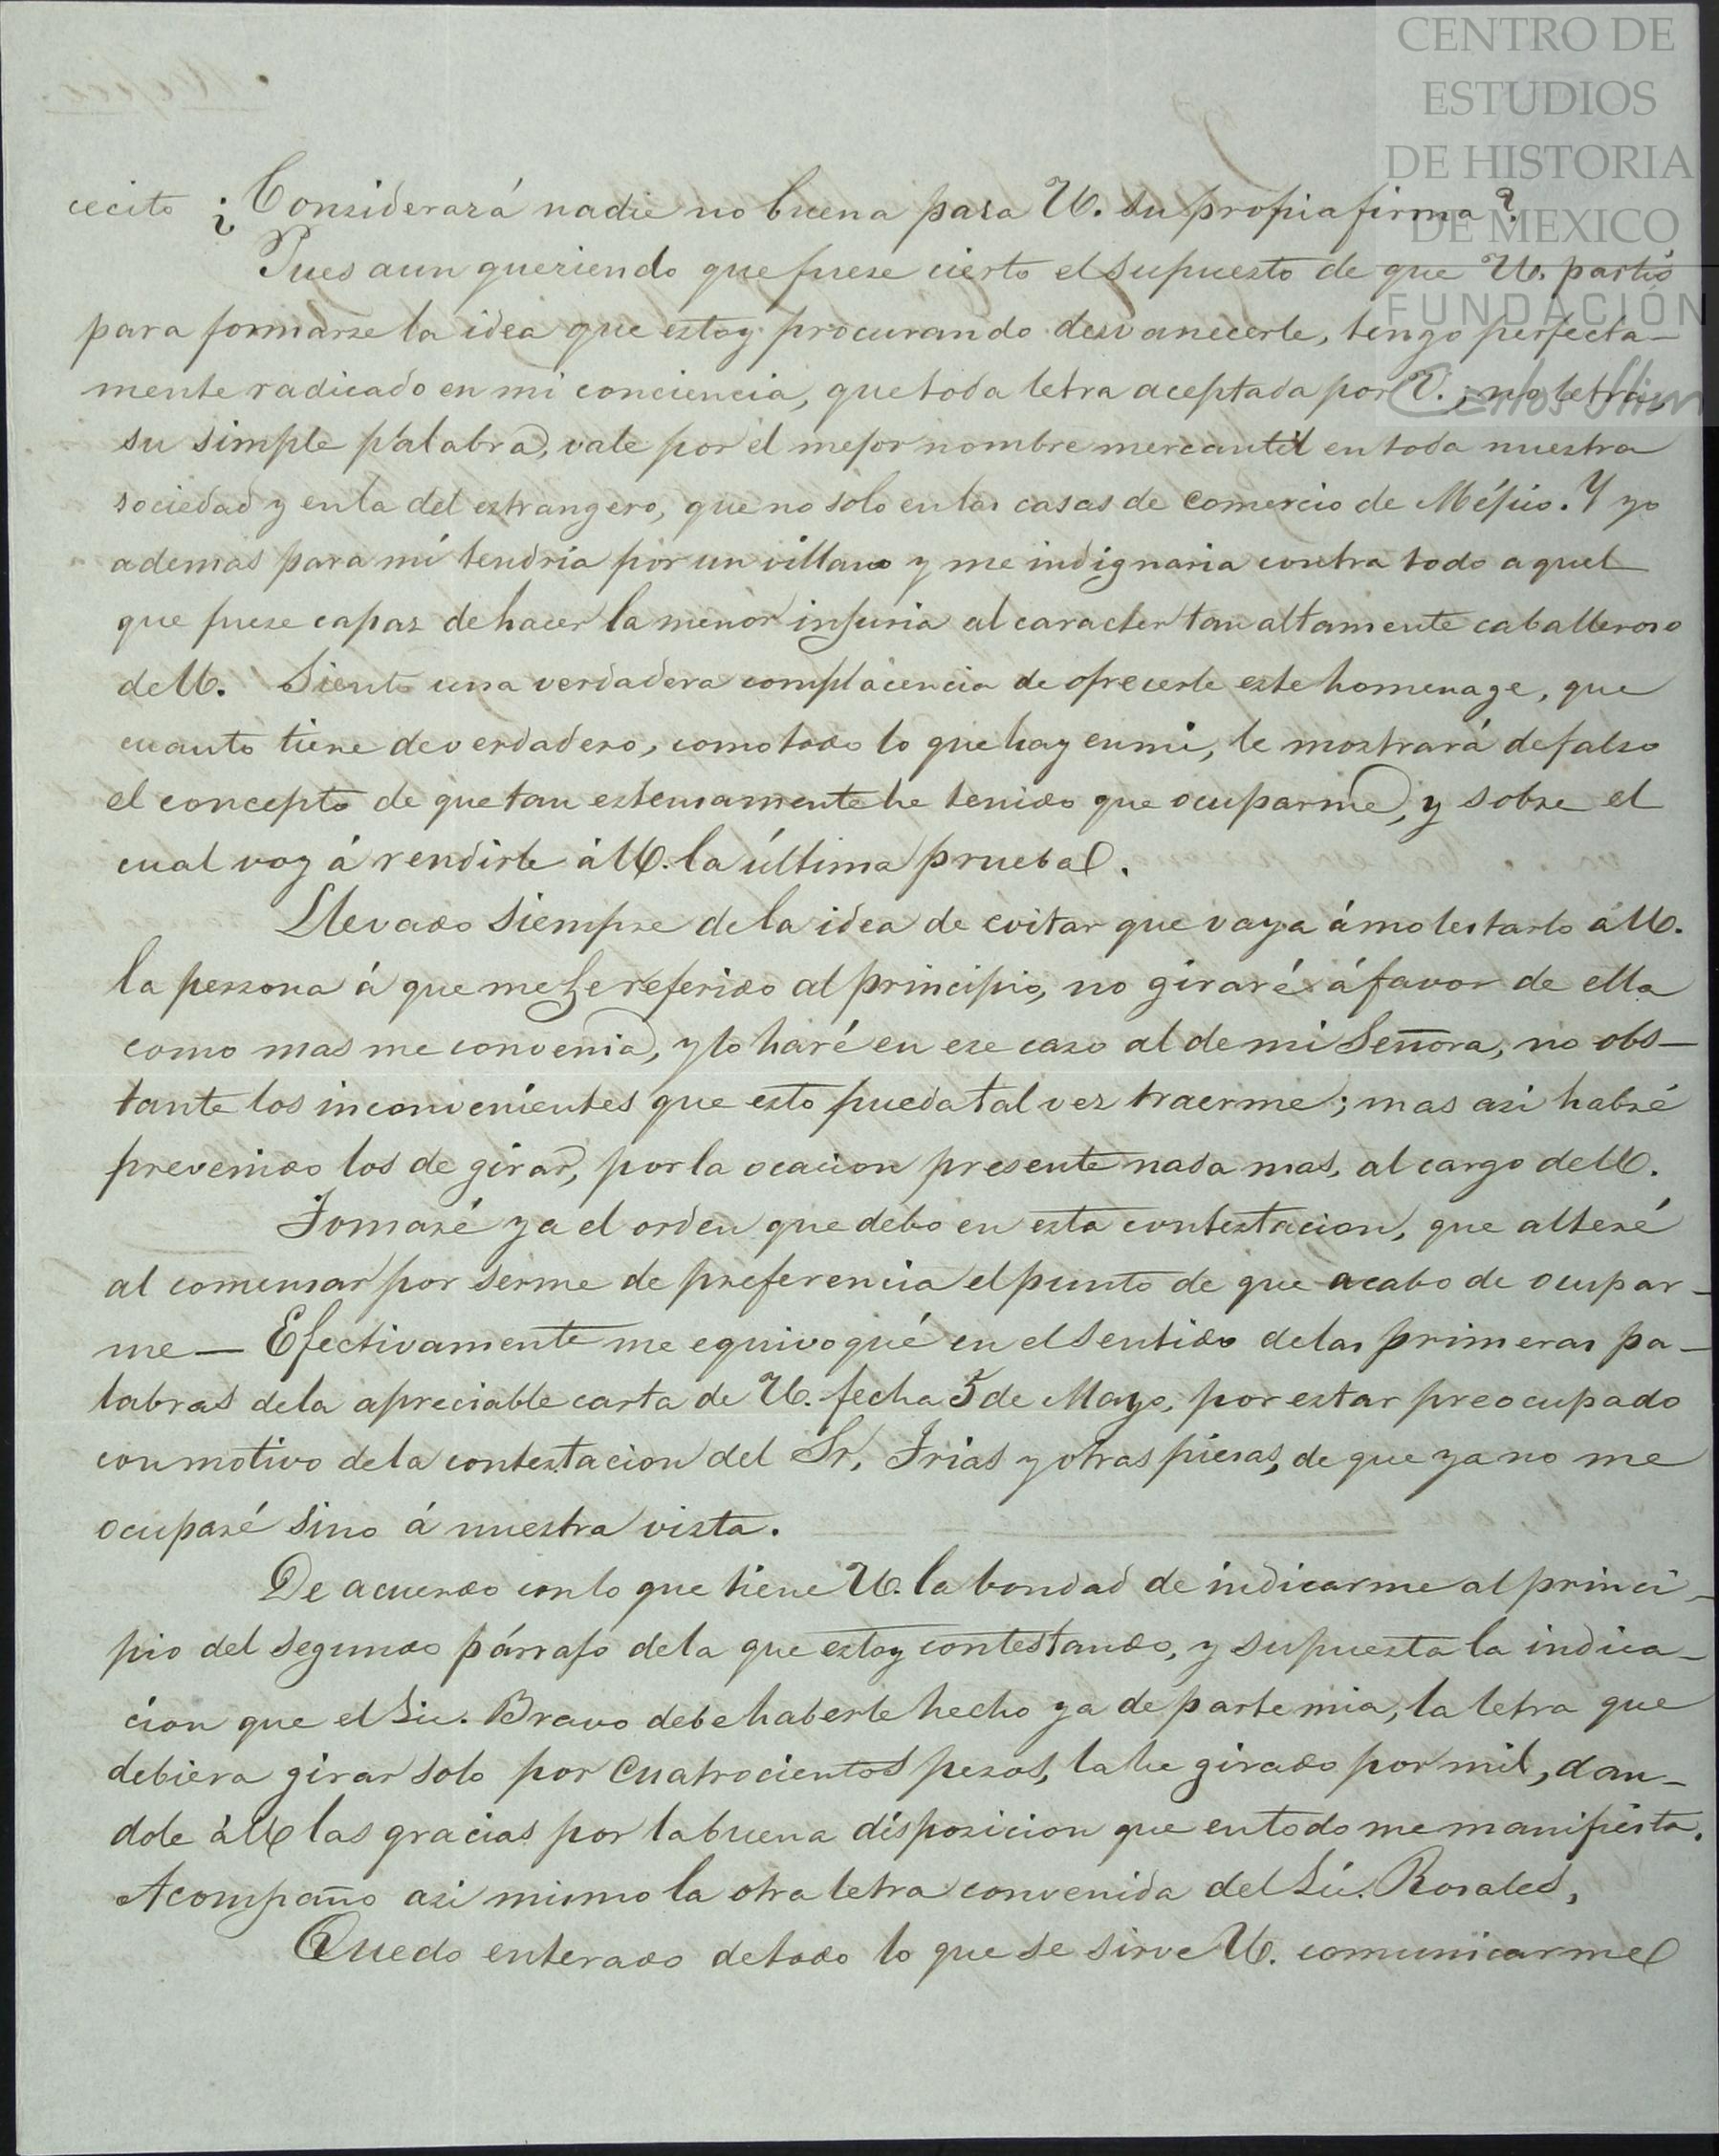 CENTRO DE
ESTUDIOS
DE HISTORIA
DE MEXICO
FUNDACIÓN
Carlos Slim
cecito ¿Considerará nadie no buena para U. su propia firma?
Pues aun queriendo que fuese cierto el supuesto de que U. partió
para formarse la idea que estoy procurando desvanecerle, tengo perfecta-
mente radicado en mi conciencia, que toda letra aceptada por U.; no letra,
su simple palabra, vale por el mejor nombre mercantil en toda nuestra
sociedad y en la del estrangero, que no solo en las casas de comercio de Méjico. Y yo
ademas para mí tendria por un villano y me indignaria contra todo aquel
que fuese capaz de hacer la menor injuria al caracter tan altamente caballeroso
de U. Siento una verdadera complacencia de ofrecerle este homenage, que
cuanto tiene de verdadero, como todo lo que hay en mi, le mostrará de falso
el concepto de que tan estensamente he tenido que ocuparme, y sobre el
cual voy á rendirle á U. la última prueba.
Llevado siempre de la idea de evitar que vaya á molestarlo á U.
la persona á que me he referido al principio, no giraré á favor de ella
como mas me convenia, y lo haré en ese caso al de mi Señora, no obs-
tante los inconvenientes que esto pueda tal vez traerme; mas asi habré
prevenido los de girar, por la ocacion presente nada mas, al cargo de U.
Tomaré ya el orden que debo en esta contestacion, que alteré
al comenzar por serme de preferencia el punto de que acabo de ocupar-
me — Efectivamente me equivoqué en el sentido de las primeras pa-
labras de la apreciable carta de U. fecha 5 de Mayo, por estar preocupado
con motivo de la contestacion del Sr. Frias y otras piezas, de que ya no me
ocuparé sino á nuestra vista.
De acuerdo con lo que tiene U. la bondad de indicarme al princi-
pio del segundo párrafo de la que estoy contestando, y supuesta la indica-
cion que el Lic. Bravo debe haberle hecho ya de parte mia, la letra que
debiera girar solo por cuatrocientos pesos, la he girado por mil, dan-
dole á U. las gracias por la buena disposicion que en todo me manifiesta.
Acompaño asi mismo la otra letra convenida del Lic. Rosales,
Quedo enterado de todo lo que se sirve U. comunicarme